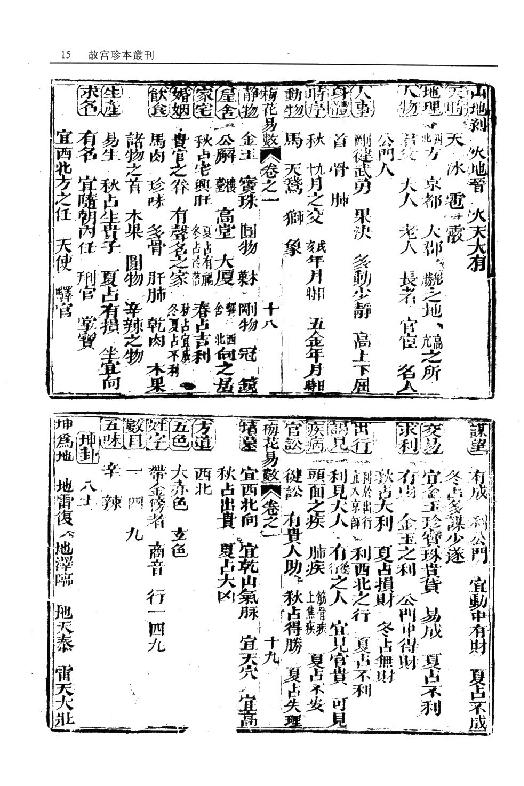 15 故宮珍本叢刊
山地剝 火地晉 火天大有
天時 天 冰 雹 霰
地理 西方 京都 大郡 之地 高亢之所
人物 君父 大人 老人 長者 官宦 名人
公門人
人事 剛健武勇 果決 多動少靜 高上下屈
身體 首 骨 肺
時序 秋 九月之交 年月日 五金年月日
動物 馬 天鵞 獅 象
梅花易數 卷之一 十八
靜物 金玉 寳珠 圓物 剛物 冠 鏡
屋舍 公廨 樓臺 高堂 大厦 向之居
家宅 秋占宅興旺 夏占有 冬占 春占吉利
婚姻 貴官之眷 有聲名之家 秋占宜 冬夏占不利
飲食 馬肉 珍味 多骨 肝肺 乾肉 木果
諸物之首 木果 圓物 辛辣之物
生產 易生 秋占生貴子 夏占有損 坐宜向
求名 有名 宜隨朝內任 刑官 掌
宜西北方之任 天使 驛官
謀望 有成 利公門 宜動中有財 夏占不成
冬占多謀少遂
交易 宜金玉珍寶珠貴貨 易成 夏占不利
求利 有財 金玉之利 公門中得財
秋占大利 夏占損財 冬占無財
出行 利於出行 宜入京師 利西北之行 夏占不利
謁見 利見大人 有德行之人 宜見官貴 可見
疾病 頭面之疾 肺疾 筋骨疾 上焦疾 夏占不安
官訟 健訟 有貴人助 秋占得勝 夏占失理
梅花易數 卷之一 十九
墳墓 宜西北向 宜乾山氣脉 宜天穴 宜高
秋占出貴 夏占大凶
方道 西北
五色 大赤色 玄色
姓字 帶金傍者 商音 行一四九
數目 一 四 九
五味 辛 辣
坤卦 八土
坤爲地 地雷復 地澤臨 地天泰 雷天大壯